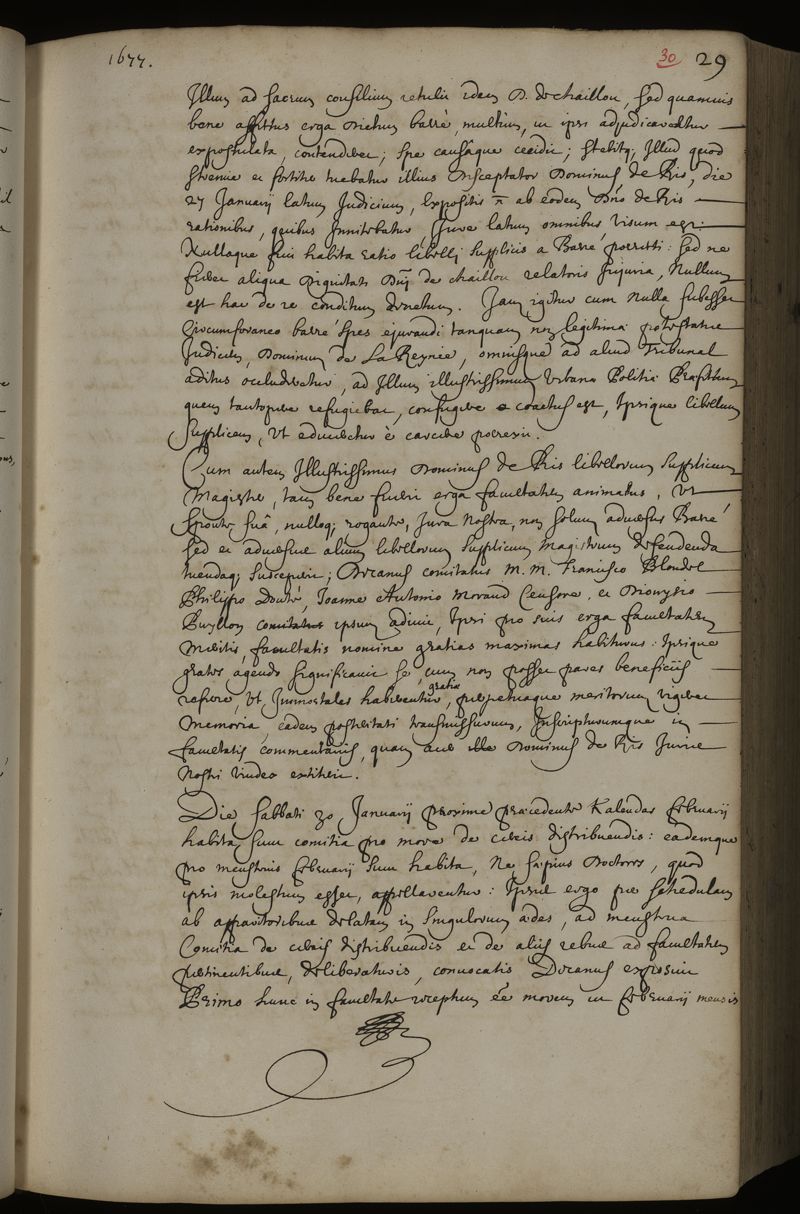 1677.
30 29
Illum ad sacrum consilium retulit idem D. de chaillou, sed quamuis
bene affectus erga dictum barré, multum, ut ipsi adjudicarentur
expostulata, contenderet; spe causâque cecidit; stetitq; Illud quod
strenue et fortiter tuebatur illius disceptator Dominus de Ris, die
27 Januarij latum Judicium, Expositis n ab eodem Dno de Ris
rationibus, quibus Innitebatur, Jure latum omnibus visum est:
Nullaque fuit habita ratio libelli supplicis a Barré porrecti: sed ne
fieret aliqua Dignitati Dnj de chaillou relatoris Injuria, Nullum
est hac de re conditum decretum. Jam igitur cum Nulla subesset
Circumforaneo barré spes ejurandi tanquam non legitima potestate
Judicem, Dominum de La Reynie, omnisque ad aliud Tribunal
aditus occluderetur, ad Illum illustrissimum Urbanæ Politiæ Præfectum
quem tantopere refugiebat, confugere coactus est, Ipsique libellum
Supplicem, Ut educeretur è carcere porrexit.
Cum autem Illustrissimus Dominus de Ris libellorum Supplicum
Magister, tam bene fuerit erga facultatem animatus, Ut
sponte suâ, nulloq; rogante, Jura Nostra, non solum adversus Barré
sed et adversus alium libellorum supplicum magistrum defendenda
tuendaq; susceperit; Decanus comitatus M. M. Francisco Blondel
Philippo Douté, Joanne Antonio Morand Censore, et Dionysio
Puylon ipsum adiit, Ipsi pro suis erga facultatem
meritis, facultatis nomine gratias maximas habiturus: Ipsique
grates agendo significavit se, cum non posset pares beneficiis
referre, Ut Immortales haberentur gratiæ, perpetuaque meritorum vigeret
Memoria, eadem posteritati transmissurum, Inscripturumque in
facultatis commentariis, quam Dominus de Ris Juris
Nostri Vindex extiterit.
Die sabbati 30 Januarij proxime præcedente Kalendas februarij
habita sunt comitia pro more de cereis distribuendis: eademque
pro menstruis februarij sunt habita, Ne sæpius Doctores, quod
ipsis molestum esset, appellarentur: Ipsis ergo per schedulam
ab apparitoribus delatam in singulorum ædes, ad menstrua
Comitia de cereis distribuendis et de aliis rebus ad facultatem
pertinentibus, deliberaturis, convocatis Decanus exposuit
Primo hunc in facultate receptum ee morem ut februarij mensis